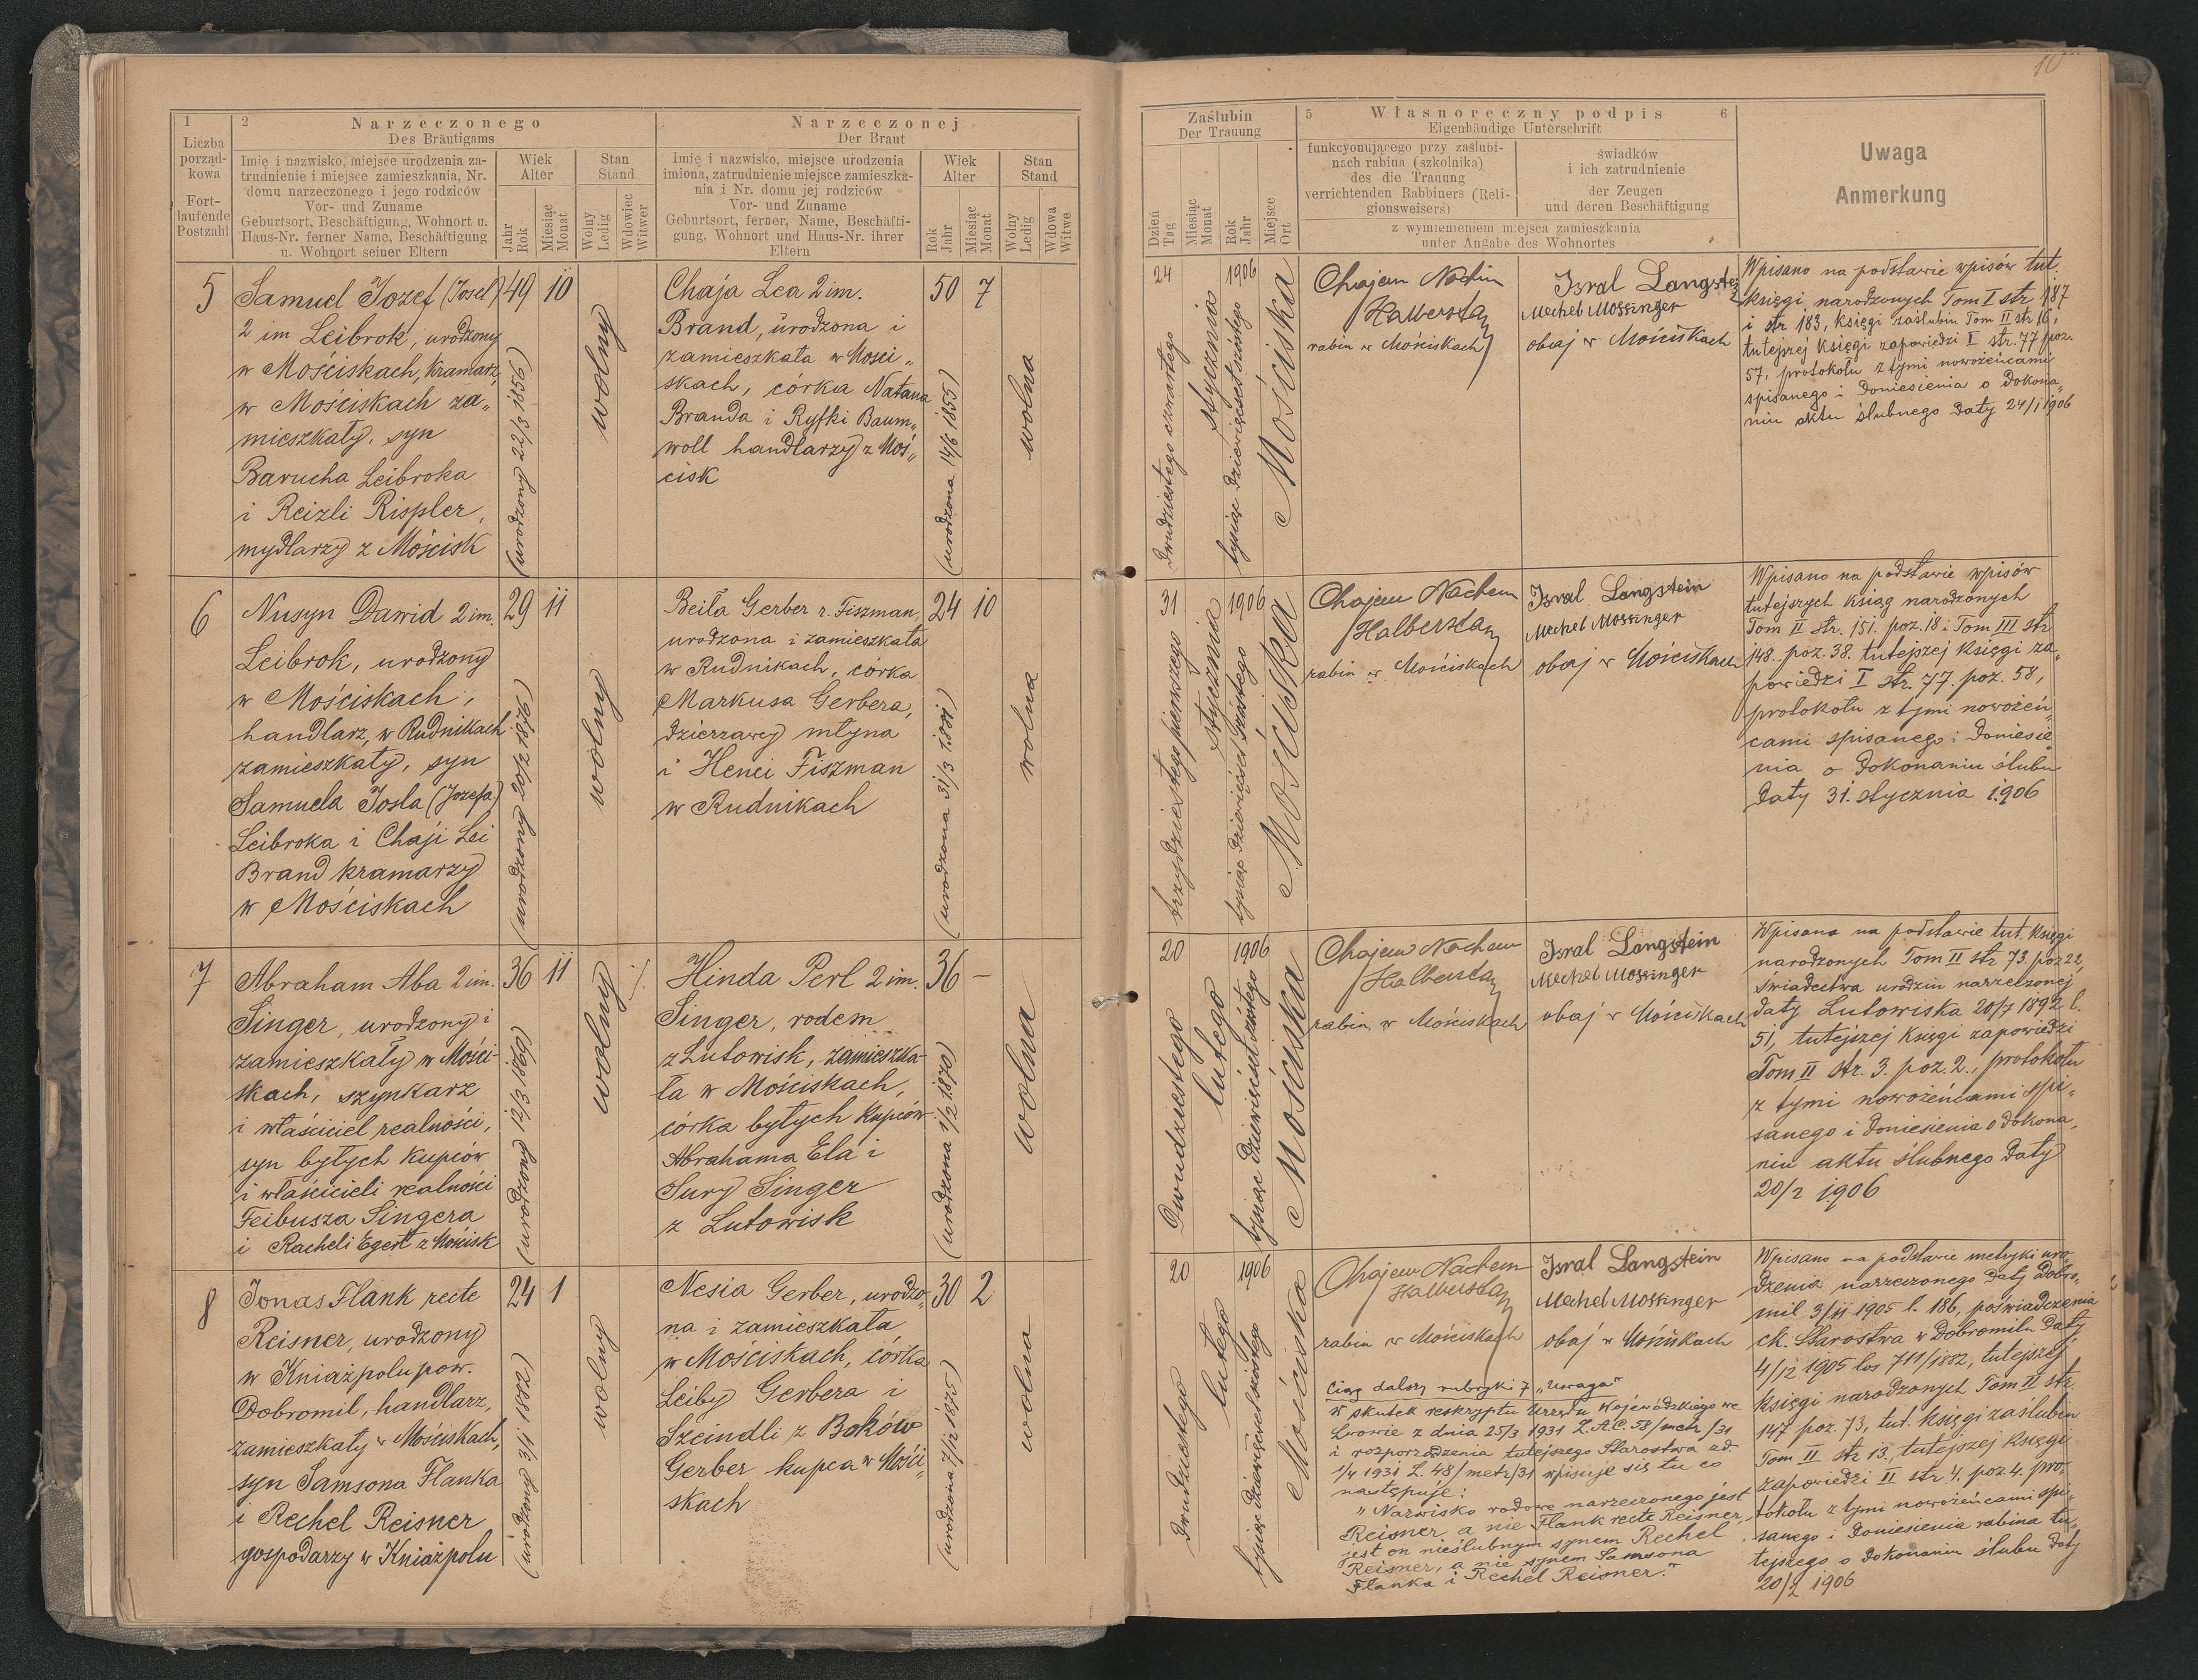 10
1
Liczba
porząd-
kowa
Fort-
laufende
Postzahl
2
Narzeczonego
Des Bräutigams
Imię i nazwisko, miejsce urodzenia za-
trudnienie i miejsce zamieszkania, Nr.
domu narzeczonego i jego rodziców
Vor- und Zuname
Geburtsort, Beschäftigung, Wohnort u.
Haus-Nr. ferner Name, Beschäftigung
u. Wohnort seiner Eltern
Wiek
Alter
Jahr
Rok
Miesiąc
Monat
Stan
Stand
Wolny
Ledig
Wdowiec
Witwer
Narzeczonej
Der Braut
Imię i nazwisko, miejsce urodzenia
imiona, zatrudnienie miejsce zamieszka-
nia i Nr. domu jej rodziców
Vor- und Zuname
Geburtsort, ferner, Name, Beschäfti-
gung, Wohnort und Haus-Nr. ihrer
Eltern
Wiek
Alter
Rok
Jahr
Miesiąc
Monat
Stan
Stand
Wolny
Ledig
Wdowa
Witwe
Zaślubin
Der Trauung
Dzień
Tag
Miesiąc
Monat
Rok
Jahr
Miejsce
Ort
5 Własnoręczny podpis 6
Eigenhändige Unterschrift
funkcyonującego przy zaślubi-
nach rabina (szkolnika)
des die Trauung
verrichtenden Rabbiners (Reli-
gionsweisers)
świadków
i ich zatrudnienie
der Zeugen
und deren Beschäftigung
z wymienieniem miejsca zamieszkania
unter Angabe des Wohnortes
Uwaga
Anmerkung
5
Samuel Jozef (Josel)
2 im Leibrok, urodzony
w Mościskach, kramarz,
w Mościskach za„
mieszkały, syn
Barucha Leibroka
i Reizli Rispler,
mydlarzy z Mościsk
49 10
(urodzony 22/3 1856)
wolny
Chaja Lea 2 im.
Brand, urodzona i
zamieszkała w Mości„
skach, córka Natana
Branda i Ryfki Baum„
woll handlarzy z Moś„
cisk
50 7
(urodzona 14/6 1855)
wolna
24
Dwudziestego czwartego
stycznia
1906
tysiąc dziewięćset szóstego
Mościska
Chajem Nachim
Halberstam
rabin w Mościskach
Isral Langstein
Mechel Mossinger
obaj w Mościskach
Wpisano na podstawie wpisów tut.
księgi narodzonych Tom I str 187
i str 183, księgi zaślubin Tom II str 16,
tutejszej księgi zapowiedzi I str. 77 poz.
57, protokołu z tymi nowożeńcami
spisanego i doniesienia o dokona„
niu aktu ślubnego daty 24/1 1906
6
Nusyn Dawid 2 im.
Leibrok, urodzony
w Mościskach,
handlarz, w Rudnikach
zamieszkały, syn
Samuela Josla (Jozefa)
Leibroka i Chaji Lei
Brand kramarzy
w Mościskach
29 11
(urodzony 20/2 1876)
wolny
Beila Gerber r. Fiszman,
urodzona i zamieszkała
w Rudnikach, córka
Markusa Gerbera,
dzierzawcy młyna
i Henci Fiszman
w Rudnikach
24 10
(urodzona 31/3 1881)
wolna
31
trzydziestego pierwszego
stycznia
1906
tysiąc dziewięćset szóstego
Mościska
Chajem Nachem
Halberstam
rabin w Mościskach
Isral Langstein
Mechel Mossinger
obaj w Mościskach
Wpisano na podstawie wpisów
tutejszych ksiąg narodzonych
Tom II str. 151. poz. 18 i Tom III str
148. poz. 38. tutejszej księgi za„
powiedzi I str. 77. poz. 58,
protokołu z tymi nowożeń„
cami spisanego i doniesie
nia o dokonaniu ślubu
daty 31. stycznia 1906
7
Abraham Aba 2 im.
Singer, urodzony i
zamieszkały w Mości-
skach, szynkarz
i właściciel realności,
syn byłych kupców
i właścicieli realności
Feibusza Singera
i Racheli Egert z Mościsk
36 11
(urodzony 12/3 1869)
wolny
Hinda Perl 2 im.
Singer, rodem
z Lutowisk, zamieszka-
ła w Mościskach,
córka byłych kupców
Abrahama Ela i
Sury Singer
z Lutowisk
36 –
(urodzona 1/2 1870)
wolna
20
Dwudziestego
lutego
1906
tysiąc dziewięćset szóstego
Mościska
Chajem Nachem
Halberstam
rabin w Mościskach
Isral Langstein
Mechel Mossinger
obaj w Mościskach
Wpisano na podstawie tut. księgi
narodzonych Tom II str 73. poz 22,
świadectwa urodzin narzeczonej
daty Lutowiska 20/7 1892 l.
51, tutejszej księgi zapowiedzi
Tom II str. 3. poz. 2., protokołu
z tymi nowożeńcami spi„
sanego i doniesienia o dokona„
niu aktu ślubnego daty
20/2 1906
8
Jonas Flank recte
Reisner, urodzony
w Kniażpolu pow.
Dobromil, handlarz,
zamieszkały w Mościskach,
syn Samsona Flanka
i Rechel Reisner
gospodarzy w Kniażpolu
24 1
(urodzony 3/1 1882)
wolny
Nesia Gerber, urodzo-
na i zamieszkała
w Mościskach, córka
Leiby Gerbera i
Szeindli z Boków
Gerber kupca w Mości„
skach
30 2
wolna
20
Dwudziestego
lutego
1906
tysiąc dziewięćset szóstego
Mościska
Chajem Nachem
Halberstam
rabin w Mościskach
Isral Langstein
Mechel Mossinger
obaj w Mościskach
Ciąg dalszy rubryki 7 „Uwaga"
W skutek reskryptu Urzędu Wojewódzkiego we
Lwowie z dnia 25/3 1931 L.A.C. 58/metr/31
i rozporządzenia tutejszego Starostwa z d.
1/4 1931 L. 48/metr/31 wpisuje się tu co
następuje:
„Nazwisko rodowe narzeczonego jest
Reisner, a nie Flank recte Reisner,
jest on nieślubnym synem Rechel
Reisner, a nie synem Samsona
Flanka i Rechel Reisner."
Wpisano na podstawie metryki uro-
dzenia narzeczonego daty Dobro„
mil 3/11 1905 l. 186, poświadczenia
ck. Starostwa w Dobromilu daty
4/12 1905 los 711/1882, tutejszej
księgi narodzonych Tom II str.
147 poz. 73, tut. księgi zaślubin
Tom II str 13., tutejszej księgi
zapowiedzi II str 4. poz 4. pro„
tokołu z tymi nowożeńcami spi„
sanego i doniesienia rabina tu„
tejszego o dokonaniu ślubu daty
20/2 1906